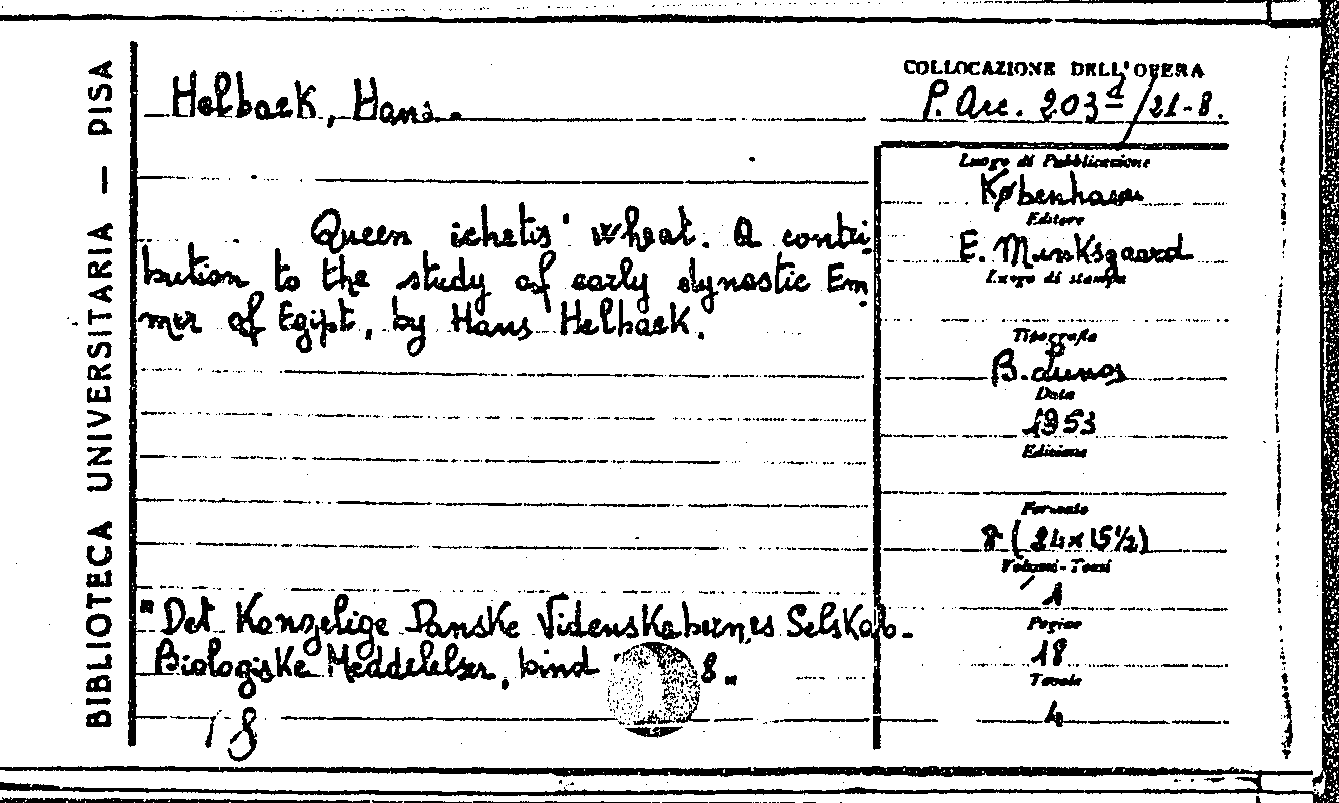 BIBLIOTECA UNIVERSITARIA — PISA
Helbaek, Hans.
COLLOCAZIONE DELL'OPERA
P. Arc. 203 d/21-8.
Queen ichetis' wheat. A contri-
bution to the study of early dynastic Em-
mer of Egipt, by Hans Helbaek.
"Det Kongelige Danske Videnskabernes Selskab.
Biologiske Meddelelser, bind 8"
18
Luogo di Pubblicazione
København
Editore
E. Munksgaard
Luogo di stampa
Tipografia
B. Lunos
Data
1953
Edizione
Formato
8 (24x15½)
Volumi-Tomi
1
Pagine
18
Tavole
4